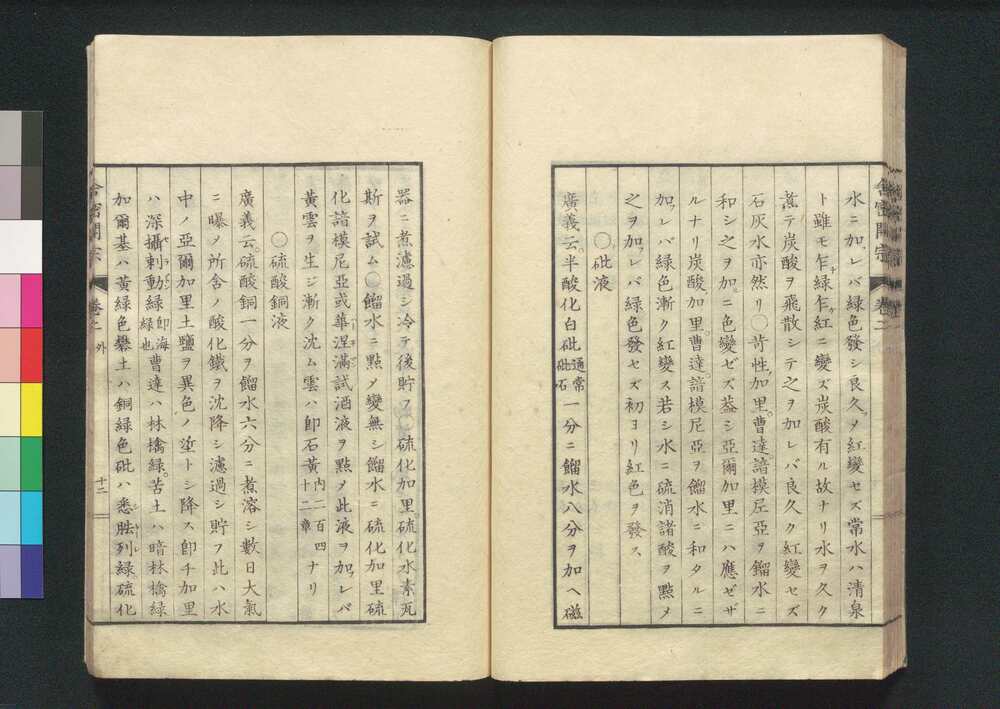 水ニ加レバ緑色發シ良久ヲ紅變セズ常水ハ清泉
ト雖モ乍緑乍紅ニ變ズ炭酸有ル故ナリ水ヲ久ク
煮テ炭酸ヲ飛散シテ之ヲ加レバ良久ク紅變セズ
石灰水亦然リ○苛性加里曹達諳模尼亞ヲ餾水ニ
和シ之ヲ加ニ色變ゼズ葢シ亞爾加里ニハ應ゼザ
ルナリ炭酸加里曹達諳模尼亞ヲ餾水ニ和タルニ
加レバ緑色漸ク紅變ス若シ水ニ硫消諸酸ヲ點メ
之ヲ加レバ緑色發セズ初ヨリ紅色ヲ發ス
○砒液
廣義云半酸化白砒通常砒石一分ニ餾水八分ヲ加ヘ磁
舎密開宗 卷二
器ニ煮濾過シ冷テ後貯フ○硫化加里硫化水素瓦
斯ヲ試ム○餾水ニ點メ變無シ餾水ニ硫化加里硫
化諳模尼亞或華涅滿試酒液ヲ點メ此液ヲ加レバ
黃雲ヲ生ジ漸ク沈ム雲ハ卽石黃内二百四十二章ナリ
○硫酸銅液
廣義云硫酸銅一分ヲ餾水六分ニ煮溶シ數日大氣
ニ曝メ所舎ノ酸化鐵ヲ沈降シ濾過シ貯フ此ハ水
中ノ亞爾加里土鹽ヲ異色ノ埿トシ降ス卽チ加里
ハ深攝剌動緑卽海緑也曹達ハ林檎緑苦土ハ暗林檎緑
加爾基ハ黃緑色礬土ハ銅緑色砒ハ悉胏列緑硫化
舎密開宗 卷二 外 十二